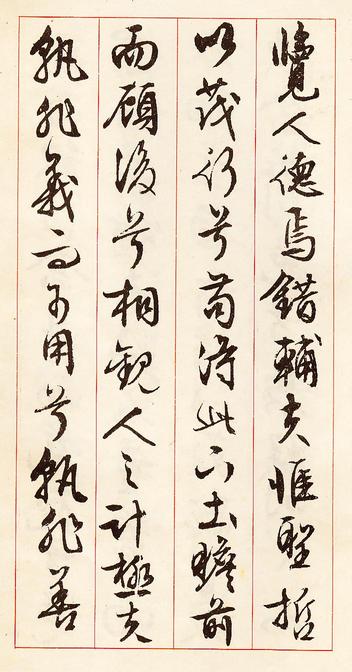 攬人德焉錯輔夫惟聖哲
以茂行兮苟得此下土瞻前
而顧後兮相觀人之計極夫
孰非義而可用兮孰非善